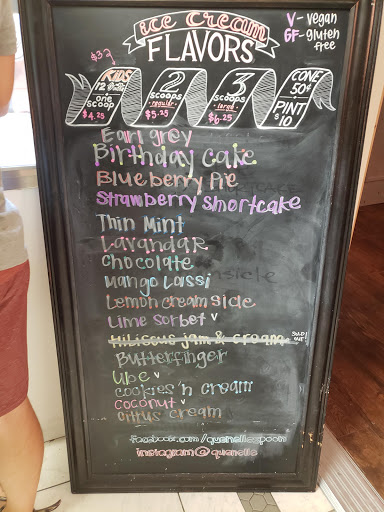 ice cream
FLAVORS
V - vegan
GF - gluten
free
KIDS
one
scoop
$4.25
2
scoops
regular
$5.25
3
scoops
large
$6.25
CONE
50¢
PINT
$10
Earl grey
Birthday cake
Blueberry Pie
Strawberry Shortcake
Thin Mint
Lavandar
Chocolate
Mango Lassi
Lemon creamsicle
Lime Sorbet v
Hibiscus jam & cream sold out
Butterfinger
Ube v
cookies 'n cream
Coconut v
citrus cream
facebook.com/quenellespoon
instagram@quenelle